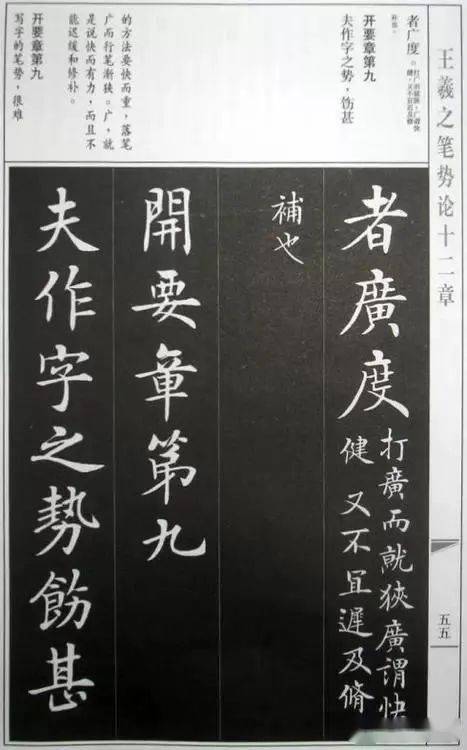 王羲之笔势论十二章
五五
者广度。打广而就狭,广谓快
健,又不宜迟及修
补也。
开要章第九
夫作字之势,饬甚
的方法要快而重,落笔
广而行笔渐狭。广,就
是说快而有力,而且不
能迟缓和修补。
开要章第九
写字的笔势,很难
者廣度 打廣而就狹廣謂快
健又不宜遲及脩
補也
開要章第九
夫作字之勢飭甚